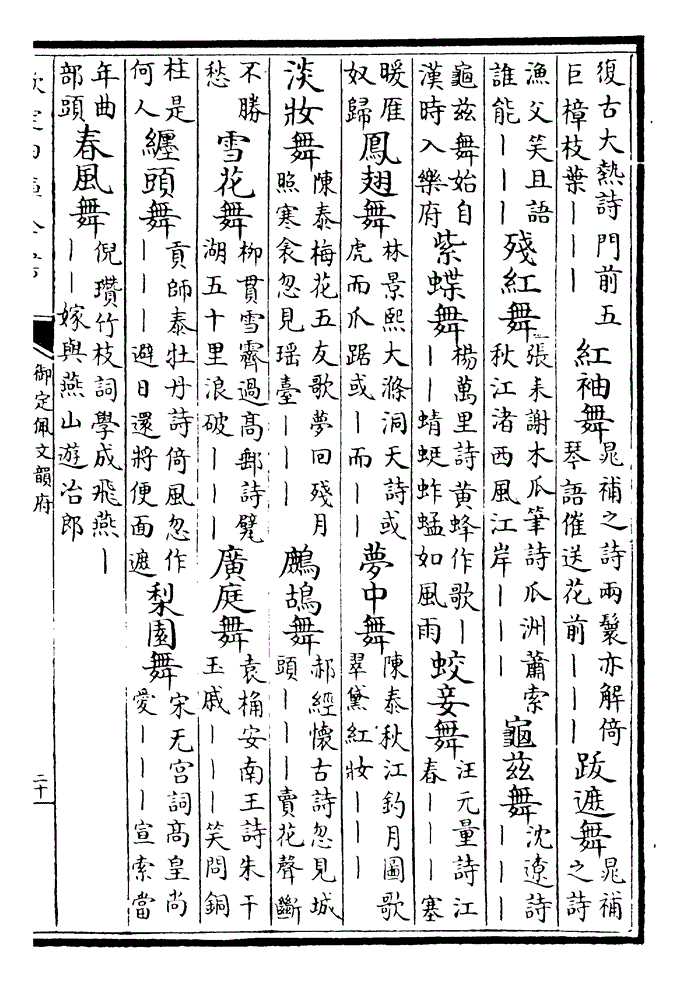 復古大熱詩門前五
巨樟枝葉｜｜｜
紅袖舞
晁補之詩兩鬟亦解倚
琴語催送花前｜｜｜
跋遮舞
晁補
之詩
漁父笑且語
誰能｜｜｜
殘紅舞
張耒謝木瓜筆詩瓜洲蕭索
秋江渚西風江岸｜｜｜
龜茲舞
沈遼詩
｜｜｜
龜茲舞始自
漢時入樂府
紫蝶舞
楊萬里詩黄蜂作歌｜
｜｜蜻蜓蚱蜢如風雨
蛟妾舞
汪元量詩江
春｜｜｜塞
暖雁
奴歸
鳳翅舞
林景熙大滌洞天詩或
虎而爪踞或｜而｜｜
夢中舞
陳泰秋江釣月圖歌
翠黛紅妝｜｜｜
淡妝舞
陳泰梅花五友歌夢回殘月
照寒衾忽見瑶臺｜｜｜
鷓鴣舞
郝經懷古詩忽見城
頭｜｜｜賣花聲斷
不勝
愁
雪花舞
柳貫雪霽過高郵詩甓
湖五十里浪破｜｜｜
廣庭舞
袁桷安南王詩朱干
玉戚｜｜｜笑問銅
柱是
何人
纏頭舞
貢師泰牡丹詩倚風忽作
｜｜｜避日還將便面遮
梨園舞
宋无宫詞高皇尚
愛｜｜｜宣索當
年曲
部頭
春風舞
倪瓚竹枝詞學成飛燕｜
｜｜嫁與燕山遊冶郎
御定佩文韻府
二十